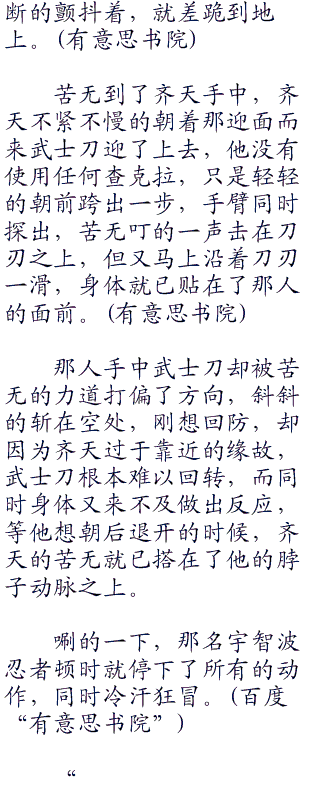 断的颤抖着，就差跪到地
上。(有意思书院)
苦无到了齐天手中，齐
天不紧不慢的朝着那迎面而
来武士刀迎了上去，他没有
使用任何查克拉，只是轻轻
的朝前跨出一步，手臂同时
探出，苦无叮的一声击在刀
刃之上，但又马上沿着刀刃
一滑，身体就已贴在了那人
的面前。(有意思书院)
那人手中武士刀却被苦
无的力道打偏了方向，斜斜
的斩在空处，刚想回防，却
因为齐天过于靠近的缘故，
武士刀根本难以回转，而同
时身体又来不及做出反应，
等他想朝后退开的时候，齐
天的苦无就已搭在了他的脖
子动脉之上。
唰的一下，那名宇智波
忍者顿时就停下了所有的动
作，同时冷汗狂冒。(百度
“有意思书院”)
“